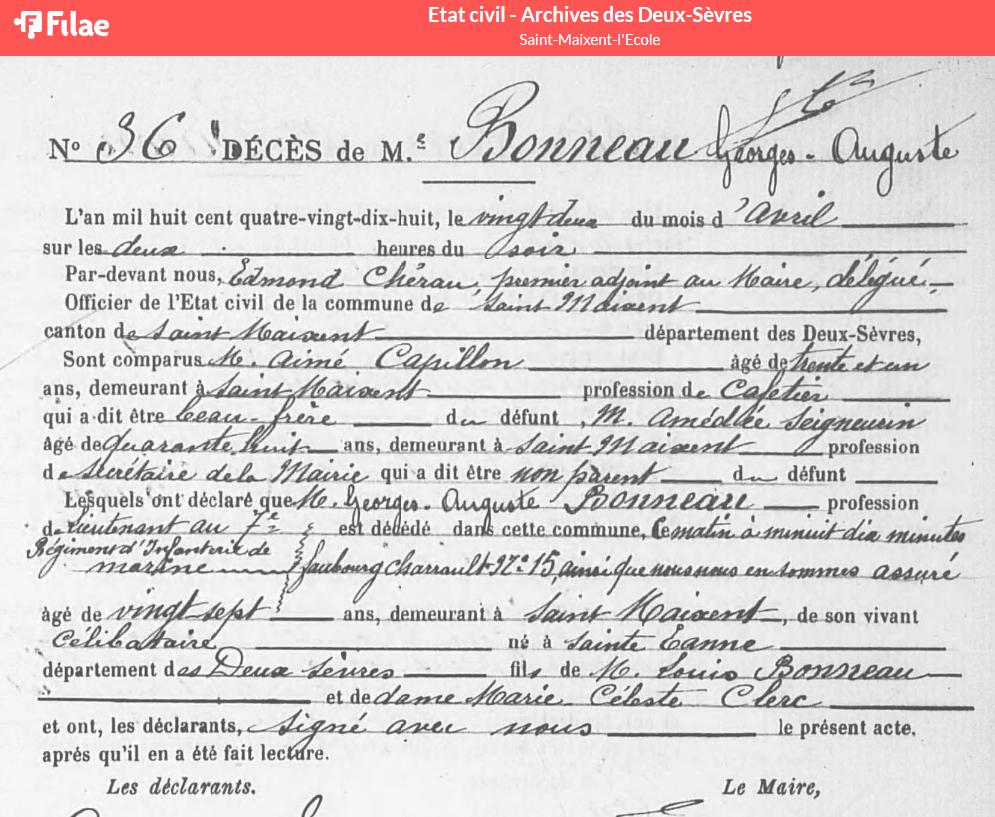 Filae
Etat civil - Archives des Deux-Sèvres
Saint-Maixent-l'Ecole
No 36 DÉCÈS de M.r Bonneau Georges-Auguste
L'an mil huit cent quatre-vingt-dix-huit, le vingt deux du mois d'Avril
sur les deux heures du soir
Par-devant nous, Edmond Chérau, premier adjoint au Maire, délégué,
Officier de l'Etat civil de la commune de Saint Maixent
canton de Saint Maixent département des Deux-Sèvres,
Sont comparus M. Aimé Capillon âgé de trente et un
ans, demeurant à Saint Maixent profession de Cafetier
qui a dit être beau-frère du défunt, M. Amédée Seigneurin
âgé de quarante huit ans, demeurant à Saint Maixent profession
de secrétaire de la Mairie qui a dit être non parent du défunt
Lesquels ont déclaré que M. Georges-Auguste Bonneau profession
de Lieutenant au 7e est décédé dans cette commune, Ce matin à minuit dix minutes
Régiment d'Infanterie de
marine faubourg Charrault No 15, ainsi que nous nous en sommes assuré
âgé de vingt sept ans, demeurant à Saint-Maixent, de son vivant
Célibataire né à Sainte Eanne
département des Deux Sèvres fils de M. Louis Bonneau
et de dame Marie Céleste Clerc
et ont, les déclarants, signé avec nous le présent acte,
après qu'il en a été fait lecture.
Les déclarants. Le Maire,